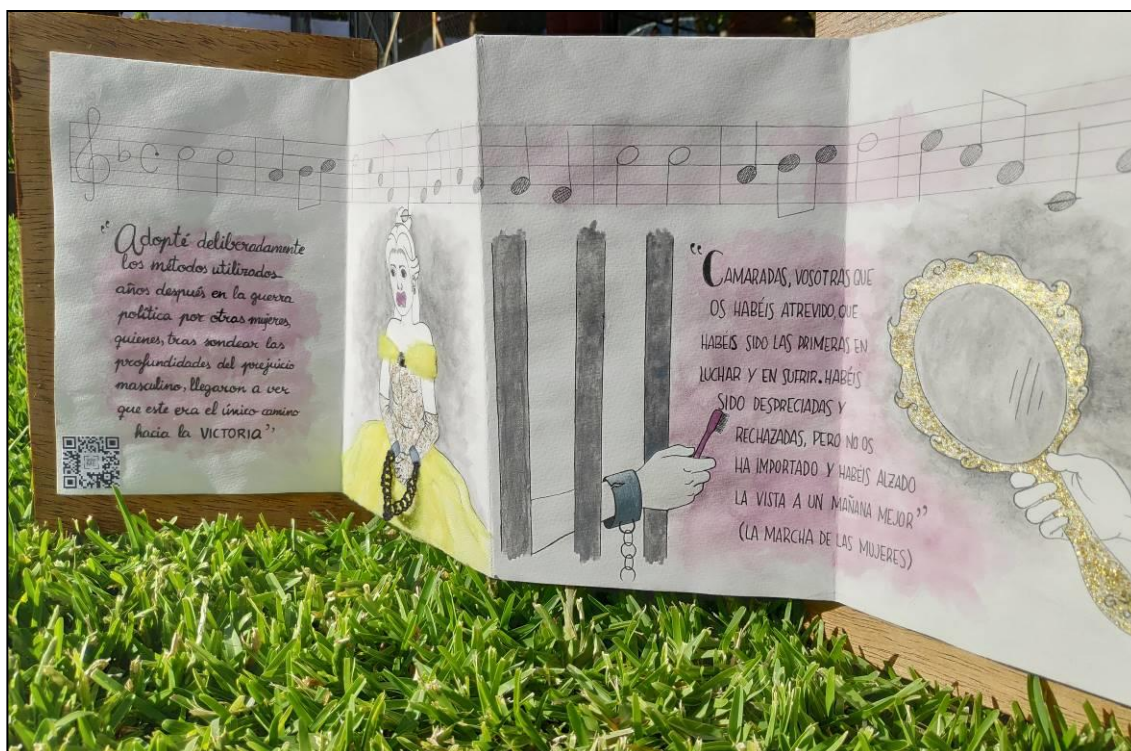 “Adopté deliberadamente
los métodos utilizados
años después en la guerra
política por otras mujeres,
quienes, tras sondear las
profundidades del prejuicio
masculino, llegaron a ver
que este era el único camino
hacia la VICTORIA”
“CAMARADAS, VOSOTRAS QUE
OS HABÉIS ATREVIDO, QUE
HABÉIS SIDO LAS PRIMERAS EN
LUCHAR Y EN SUFRIR. HABÉIS
SIDO DESPRECIADAS Y
RECHAZADAS, PERO NO OS
HA IMPORTADO Y HABÉIS ALZADO
LA VISTA A UN MAÑANA MEJOR”
(LA MARCHA DE LAS MUJERES)